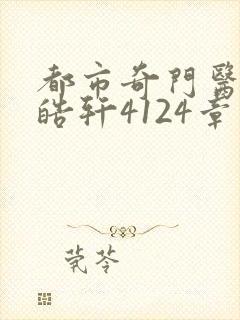 都市奇門醫
皓軒4124章
莞苓